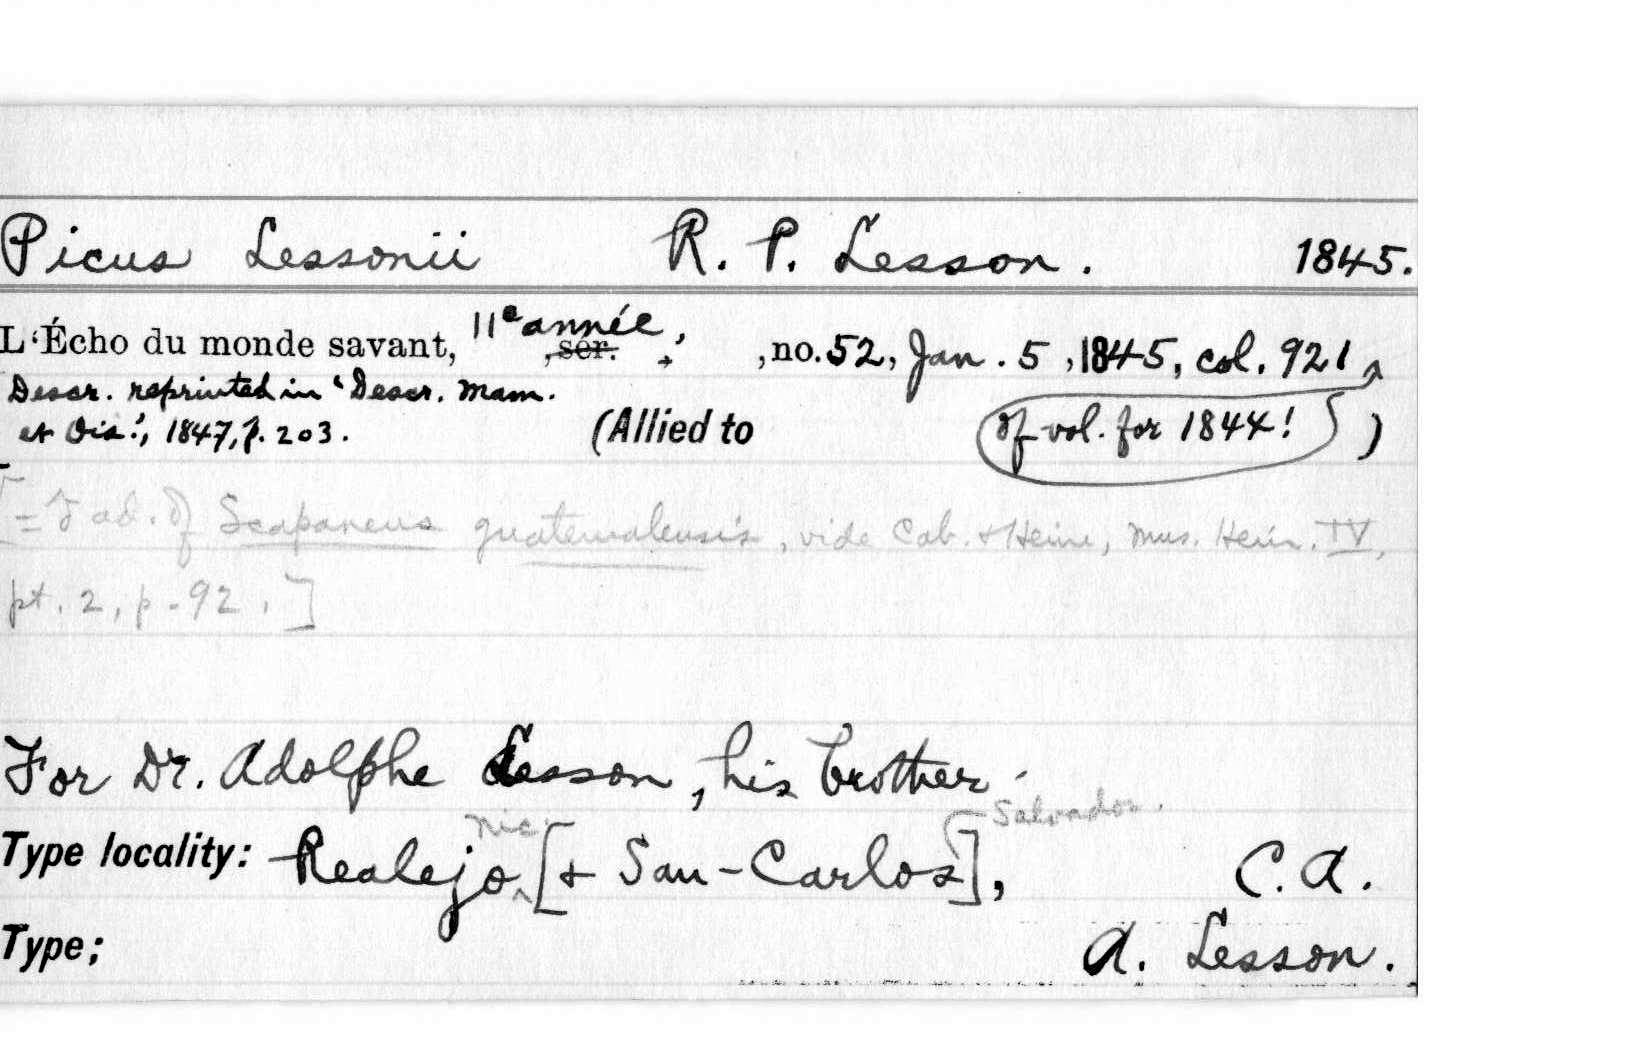 Picus Lessonii R. P. Lesson. 1845.
L'Écho du monde savant, 11e année, ,ser. , ,no. 52, Jan. 5, 1845, col. 921
Descr. reprinted in 'Descr. Mam.
et Ois.', 1847, p. 203. (Allied to of vol. for 1844! )
[= ♂ ad. of Scapaneus guatemalensis, vide Cab. + Heine, Mus. Hein. IV,
pt. 2, p. 92.]
For Dr. Adolphe Lesson, his brother.
Nic. Salvador.
Type locality: Realejo [+ San-Carlos], C.A.
Type; A. Lesson.